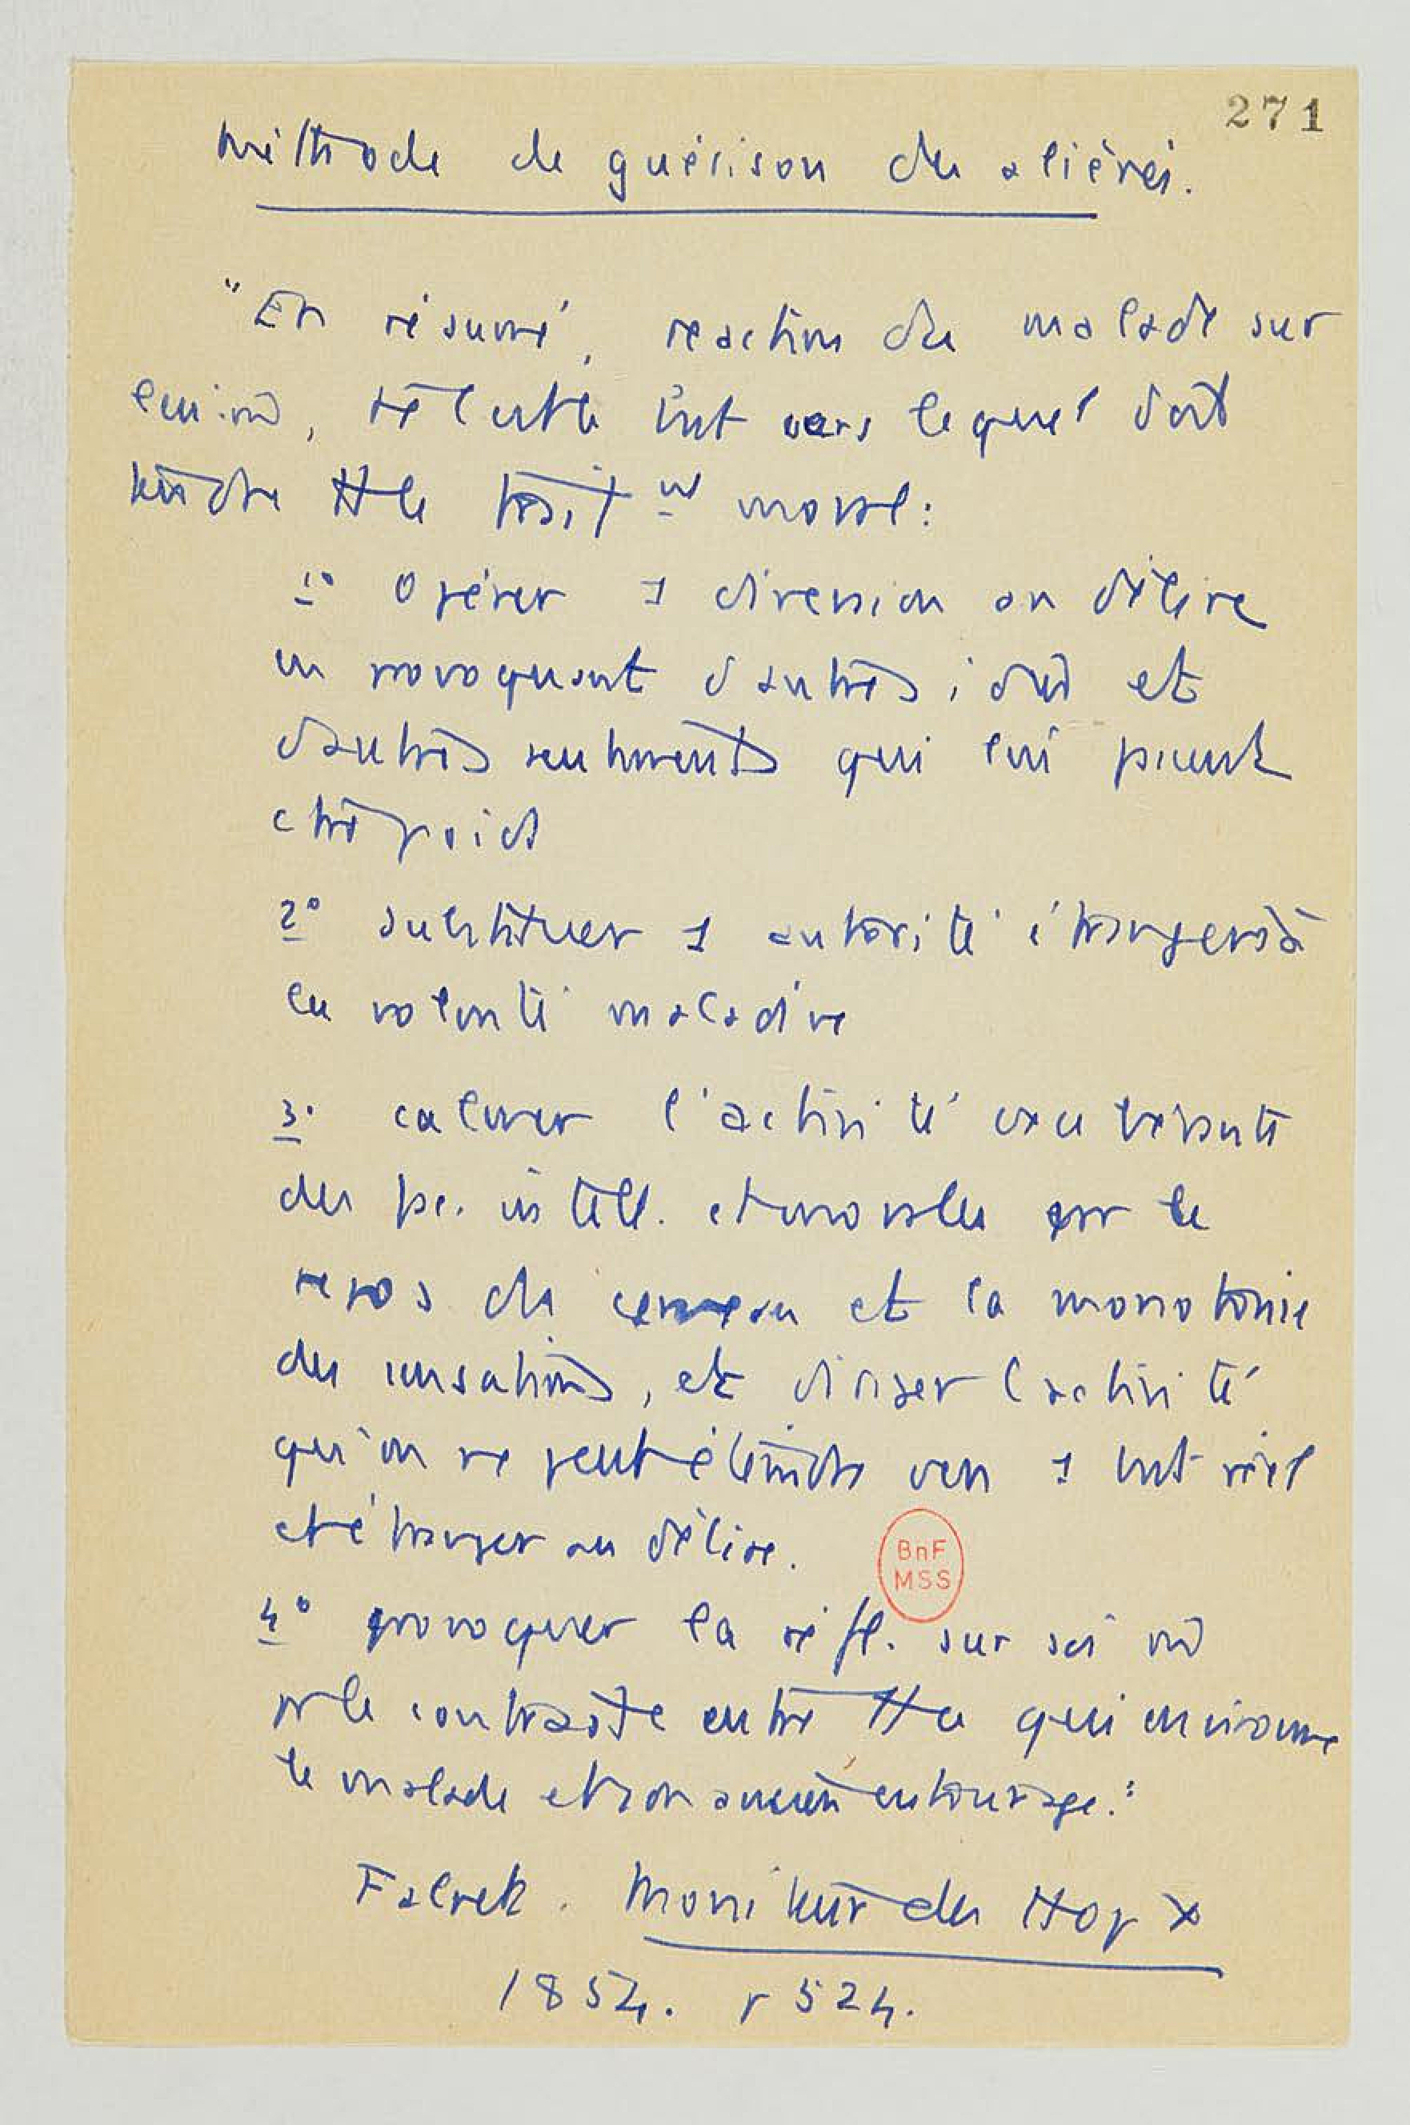 271
Méthode de guérison des aliénés.
"En résumé, réaction du malade sur
lui-m̂, tel est le but vers lequel doit
tendre tt le trait nt moral:
1° Opérer 1 diversion au délire
en provoquant d'autres idées et
d'autres sentiments qui lui
2° substituer 1 autorité étrangère à
la volonté maladive
3° calmer l'activité exubérante
des fac. intell. et morales par le
repos du cerveau et la monotonie
des sensations, et diriger l'activité
qu'on ne peut éteindre vers 1 but réel
et étranger au délire.
BnF
MSS
4° provoquer la réfl. sur soi m̂
p le contraste entre tt ce qui environne
le malade et son ancien entourage."
Falret. Moniteur des Hop x
1854. p 524.